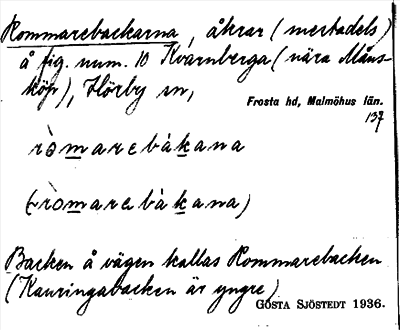 Rommarebackarna, åkrar (mestadels)
å fig. num. 10 Kvarnberga (nära Måns-
köp), Hörby sn,
Frosta hd, Malmöhus län.
137
ròmarebàkana
(ròmarebàkana)
Backen å vägen kallas Rommarebacken
(Kauringabacken är yngre)
GÖSTA SJÖSTEDT 1936.